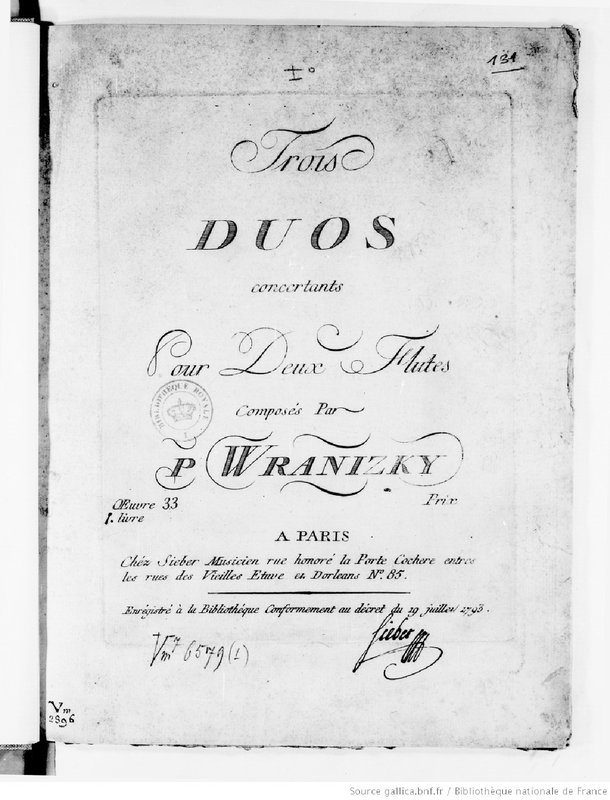 131
1º
Trois
DUOS
concertants
Pour Deux Flutes
Composés Par
BIBLIOTHEQUE ROYALE
P WRANIZKY
Œuvre 33
Prix
1. livre
A PARIS
Chéz Sieber Musicien rue honoré la Porte Cochere entres
les rues des Vieilles Etuve et Dorleans Nº. 85.
Enrégistré à la Bibliothéque Conformement au décret du 19 juillet 1793.
Sieber
Vm⁷ 6579 (1)
Vm
2896
Source gallica.bnf.fr / Bibliothèque nationale de France